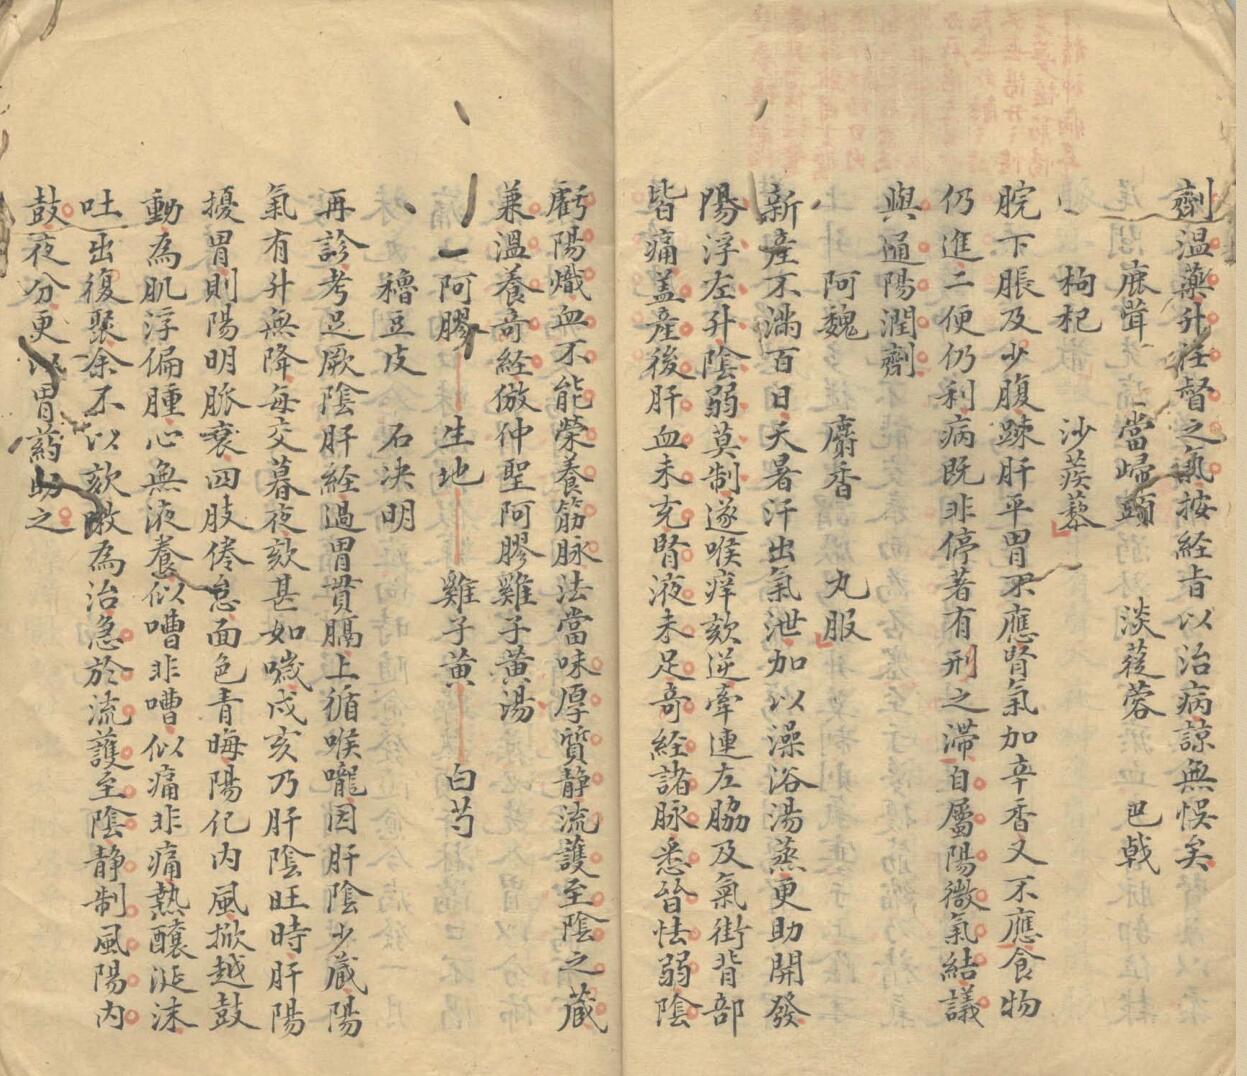 劑温藥升任督之氣按經㫖以治病諒無悮矣
鹿茸 當歸頭 淡蓯蓉 巴戟
枸杞 沙蒺藜
脘下脹及少腹踈肝平胃不應腎氣加辛香又不應食物
仍進二便仍利病既非停著有刑之滯自屬陽微氣結議
與通陽潤劑
阿魏 麝香 丸服
新産不滿百日天暑汗出氣泄加以澡浴湯蒸更助開發
陽浮左升陰弱莫制遂喉痒欬逆牽連左脇及氣街背部
皆痛盖産後肝血未充腎液未足奇經諸脉悉皆怯弱陰
虧陽熾血不能榮養筋脉法當味厚質静流護至陰之蔵
兼溫養奇經倣仲聖阿膠雞子黄湯
阿膠 生地 雞子黄 白芍
穭豆皮 石决明
再診考足厥陰肝経過胃貫膈上循喉嚨因肝陰少蔵陽
氣有升無降每交暮夜欬甚如嘰戌亥乃肝陰旺時肝陽
擾胃則陽明脈衰四肢倦怠面色青晦陽化内風掀越鼓
動為肌浮偏腫心無液養似嘈非嘈似痛非痛熱釀涎沫
吐出復聚余不以欬嗽為治急於流護至陰静制風陽内
鼓夜分更以胃药助之